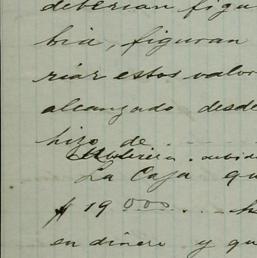 deberian figu
bia, figuran
riar estos valor
alcanzado desde
hizo de
La Caja qu
$ 19 000 . . -
en dinero y qu